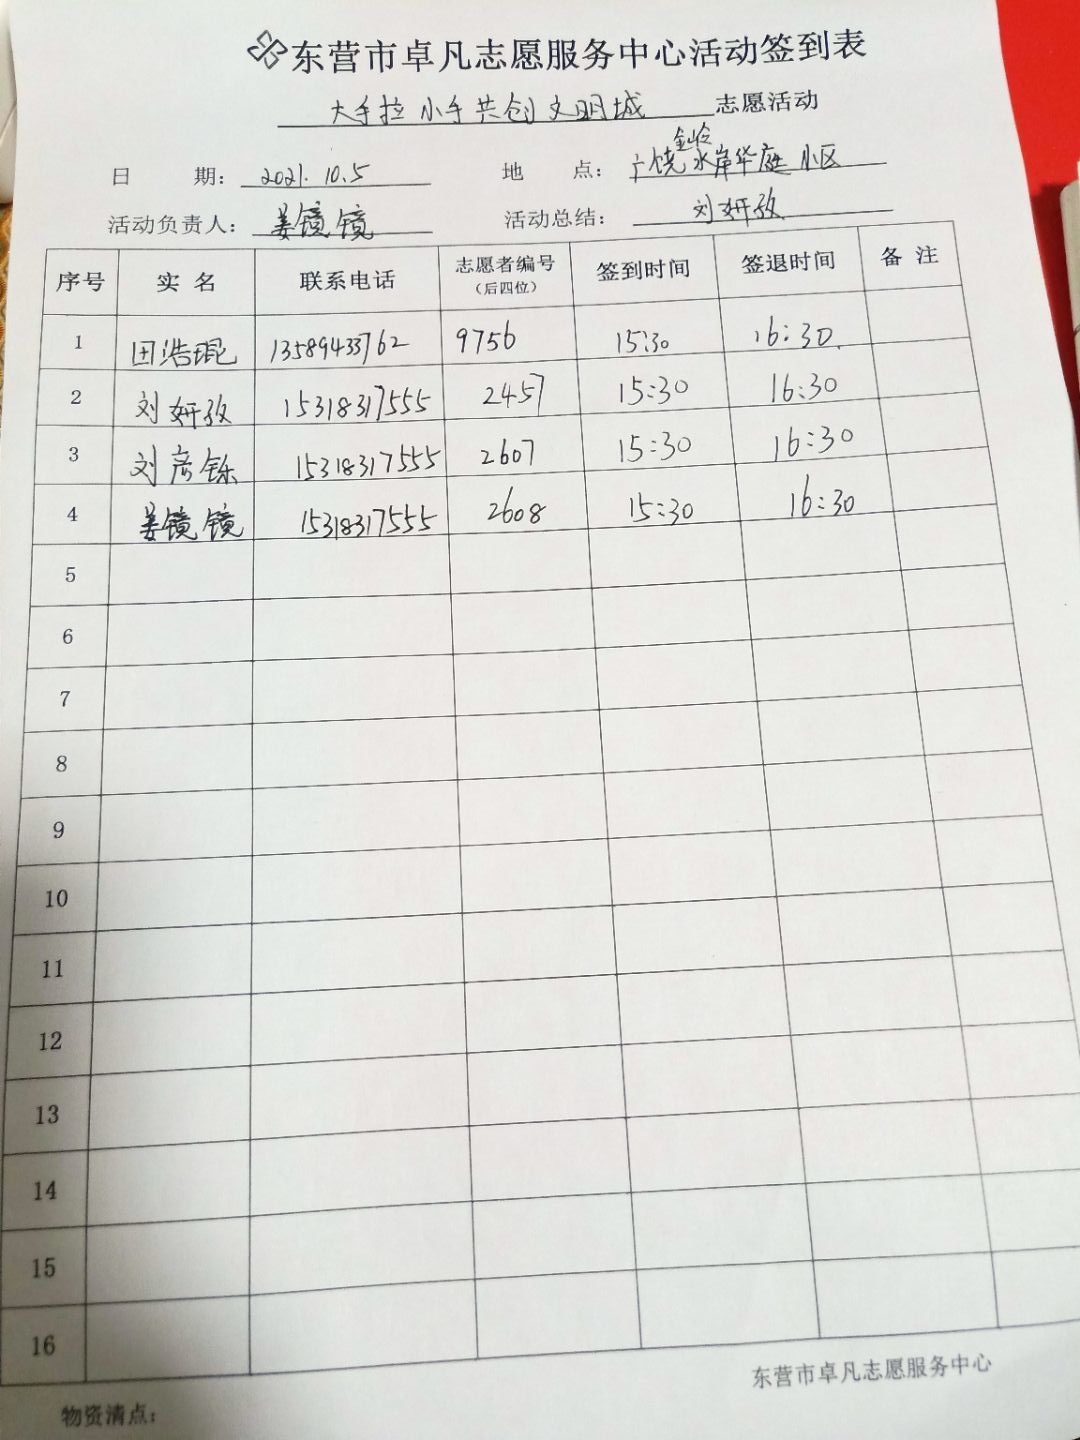 东营市卓凡志愿服务中心活动签到表
大手拉小手共创文明城 志愿活动
日 期: 2021.10.5 地 点: 广饶金岭水岸华庭小区
活动负责人: 姜镜镜 活动总结: 刘妍孜
序号 实名 联系电话 志愿者编号(后四位) 签到时间 签退时间 备注
1 田浩琨 13589433762 9756 15:30 16:30
2 刘妍孜 15318317555 2457 15:30 16:30
3 刘彦铄 15318317555 2607 15:30 16:30
4 姜镜镜 15318317555 2608 15:30 16:30
5
6
7
8
9
10
11
12
13
14
15
16
东营市卓凡志愿服务中心
物资清点: